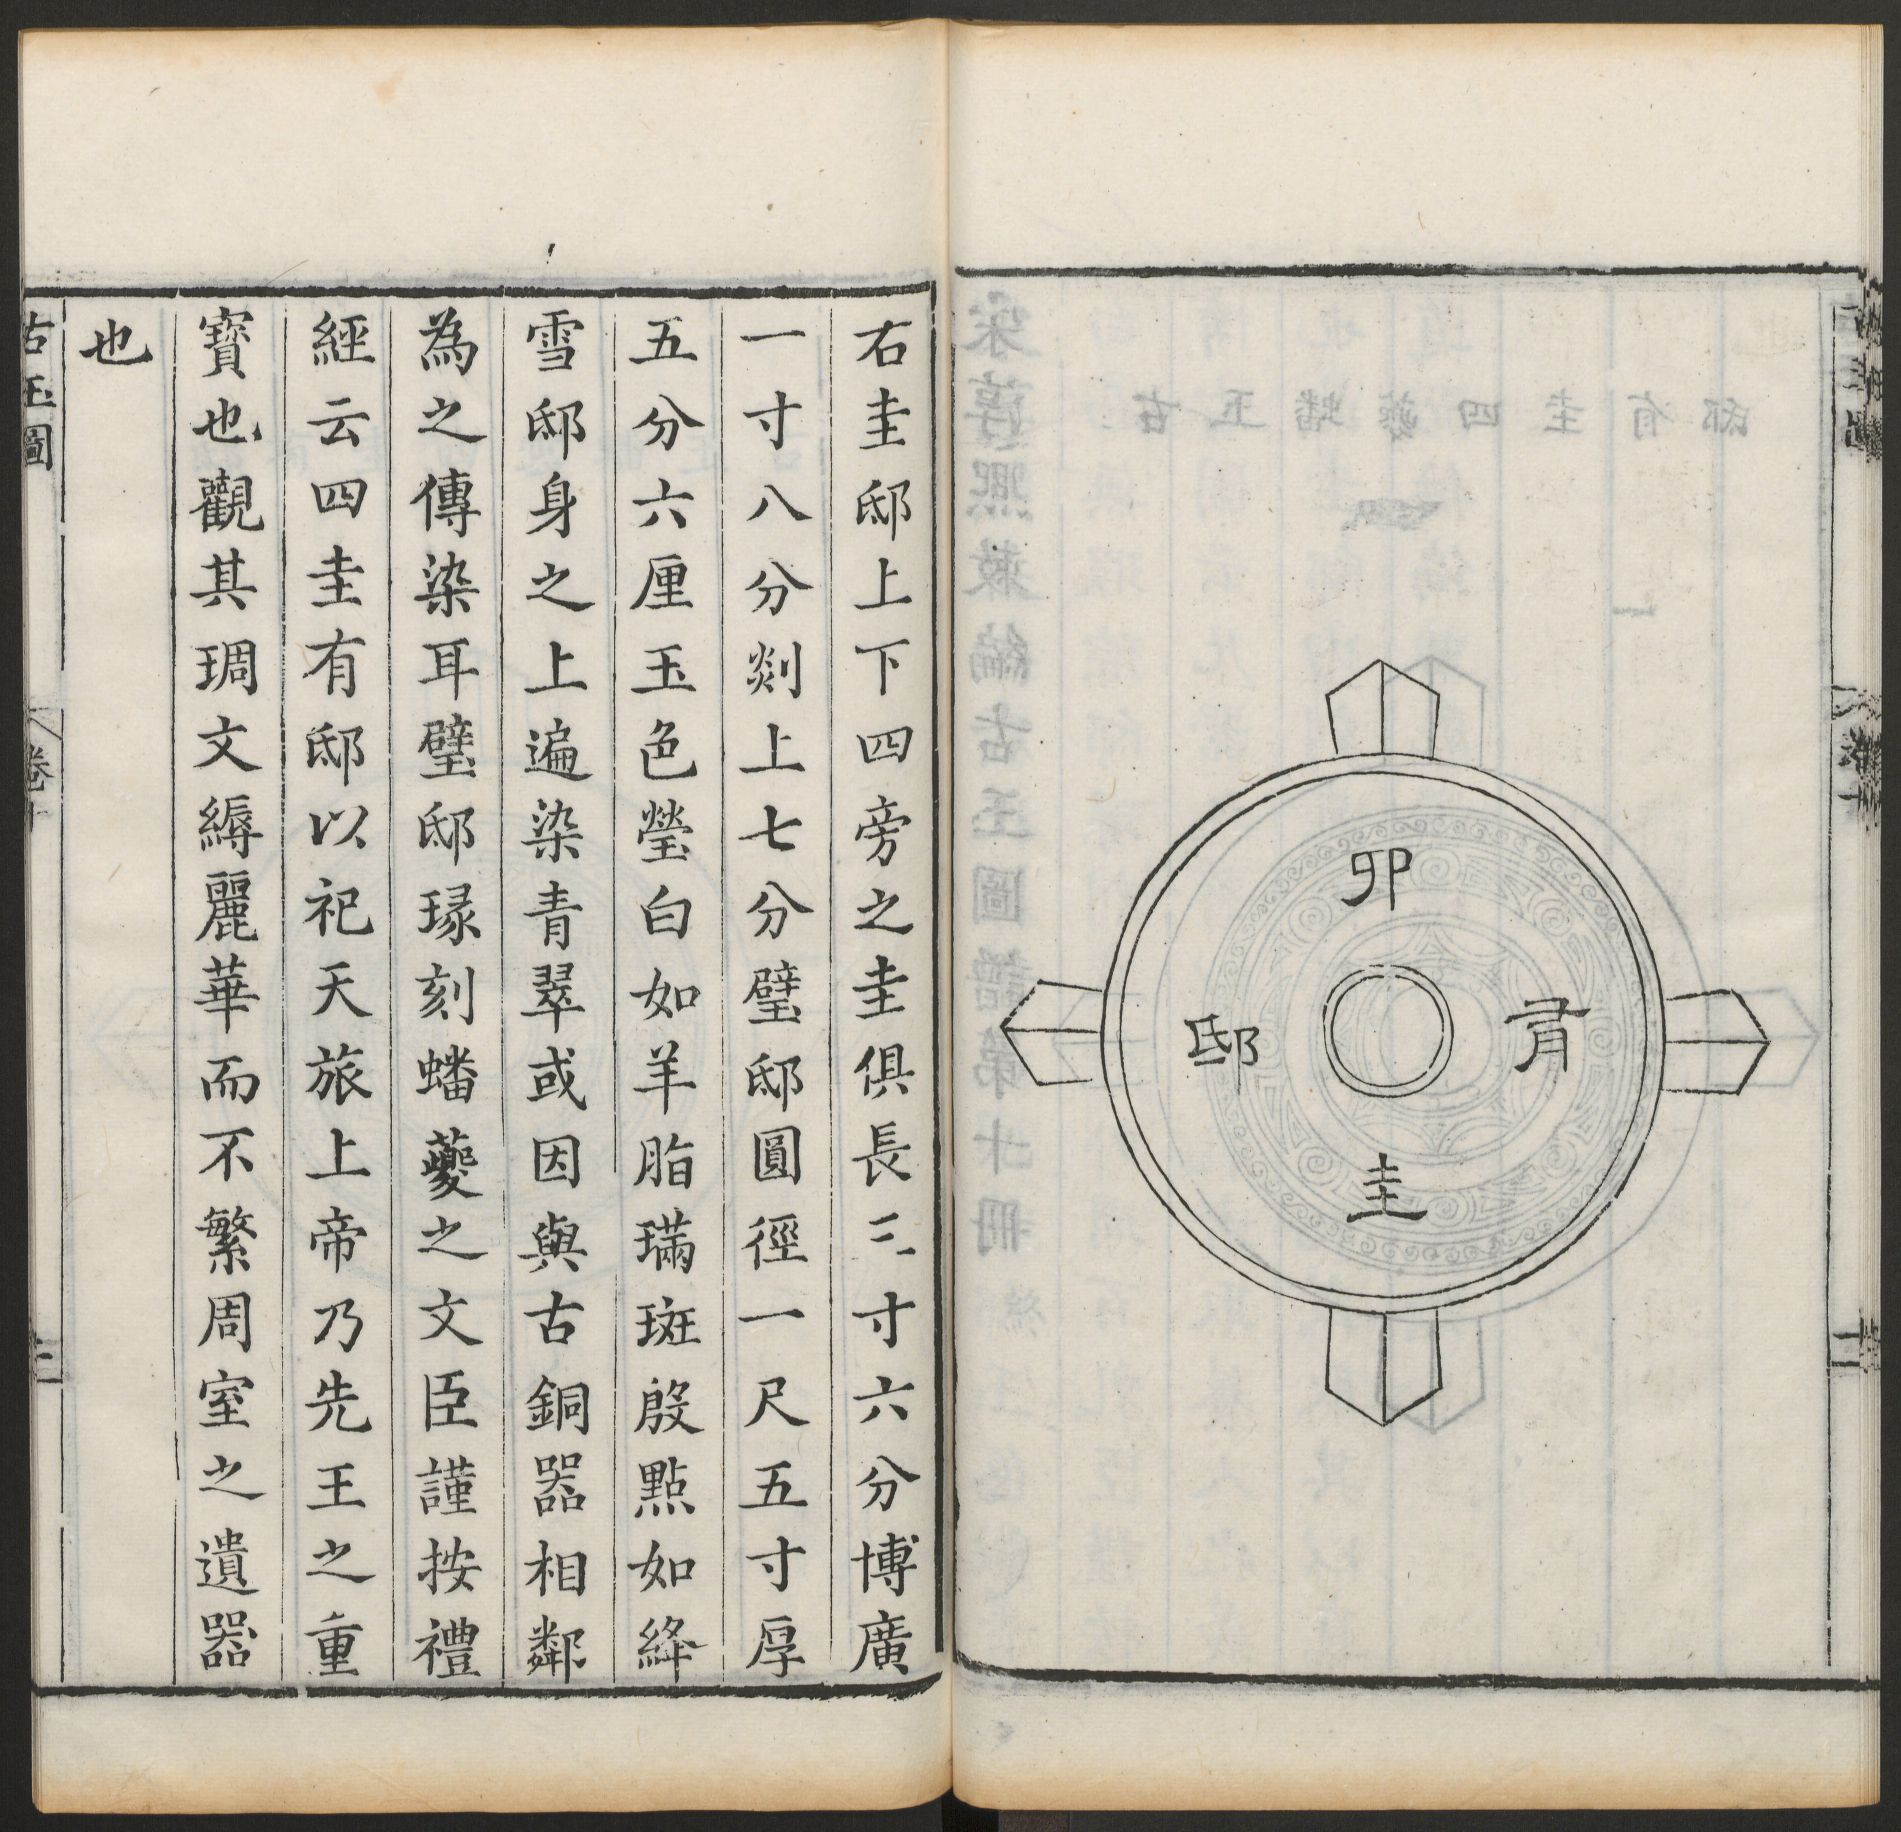 卯
有
圭
邸
右圭邸上下四旁之圭俱長三寸六分博廣
一寸八分剡上七分璧邸圓徑一尺五寸厚
五分六厘玉色瑩白如羊脂璊斑殷點如絳
雪邸身之上遍染青翠或因與古銅器相鄰
為之傳染耳璧邸瑑刻蟠夔之文臣謹按禮
經云四圭有邸以祀天旅上帝乃先王之重
寶也觀其琱文縟麗華而不繁周室之遺器
也
古玉圖
卷十